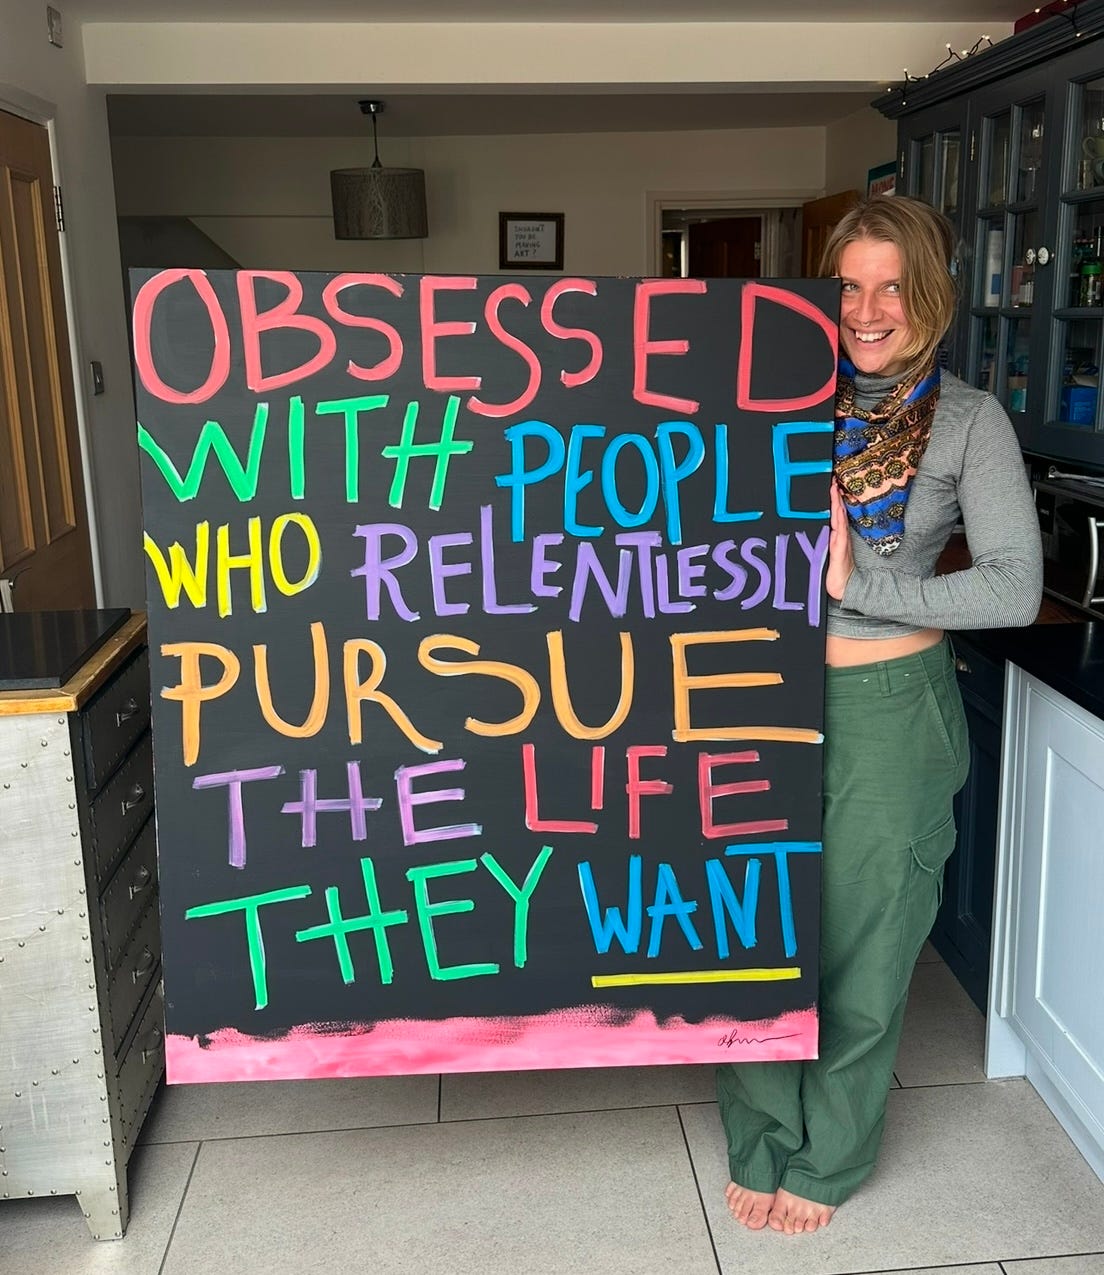 SHOULDN'T
YOU BE
MAKING
ART?
OBSESSED
WITH PEOPLE
WHO RELENTLESSLY
PURSUE
THE LIFE
THEY WANT